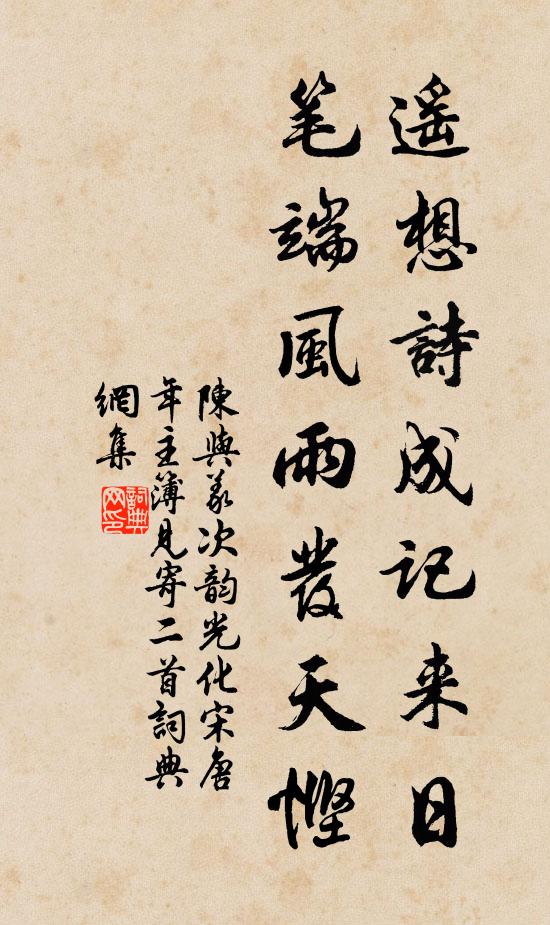 遥想詩成記来日
笔端風雨發天慳
陳與義次韵光化宋唐
年主簿見寄二首詞典
網集
詞典
网印